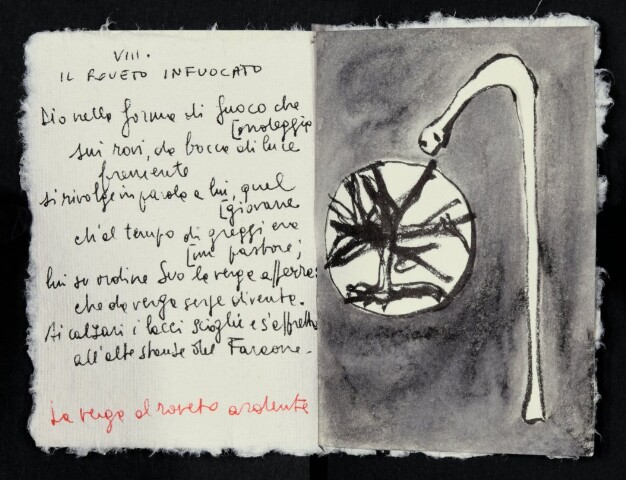 VIII.
IL ROVETO INFUOCATO
Dio nella forma di fuoco che
[ondeggia
sui rovi, da bocca di luce
fremente
si rivolge in parola a lui, quel
[giovane
ch'al tempo di greggi era
[un pastore;
lui su ordine Suo la verga afferra:
che da verga serpe divente.
Ai calzari i lacci scioglie e s'affretta
all'alte stanze del Faraone.
La verga al roveto ardente